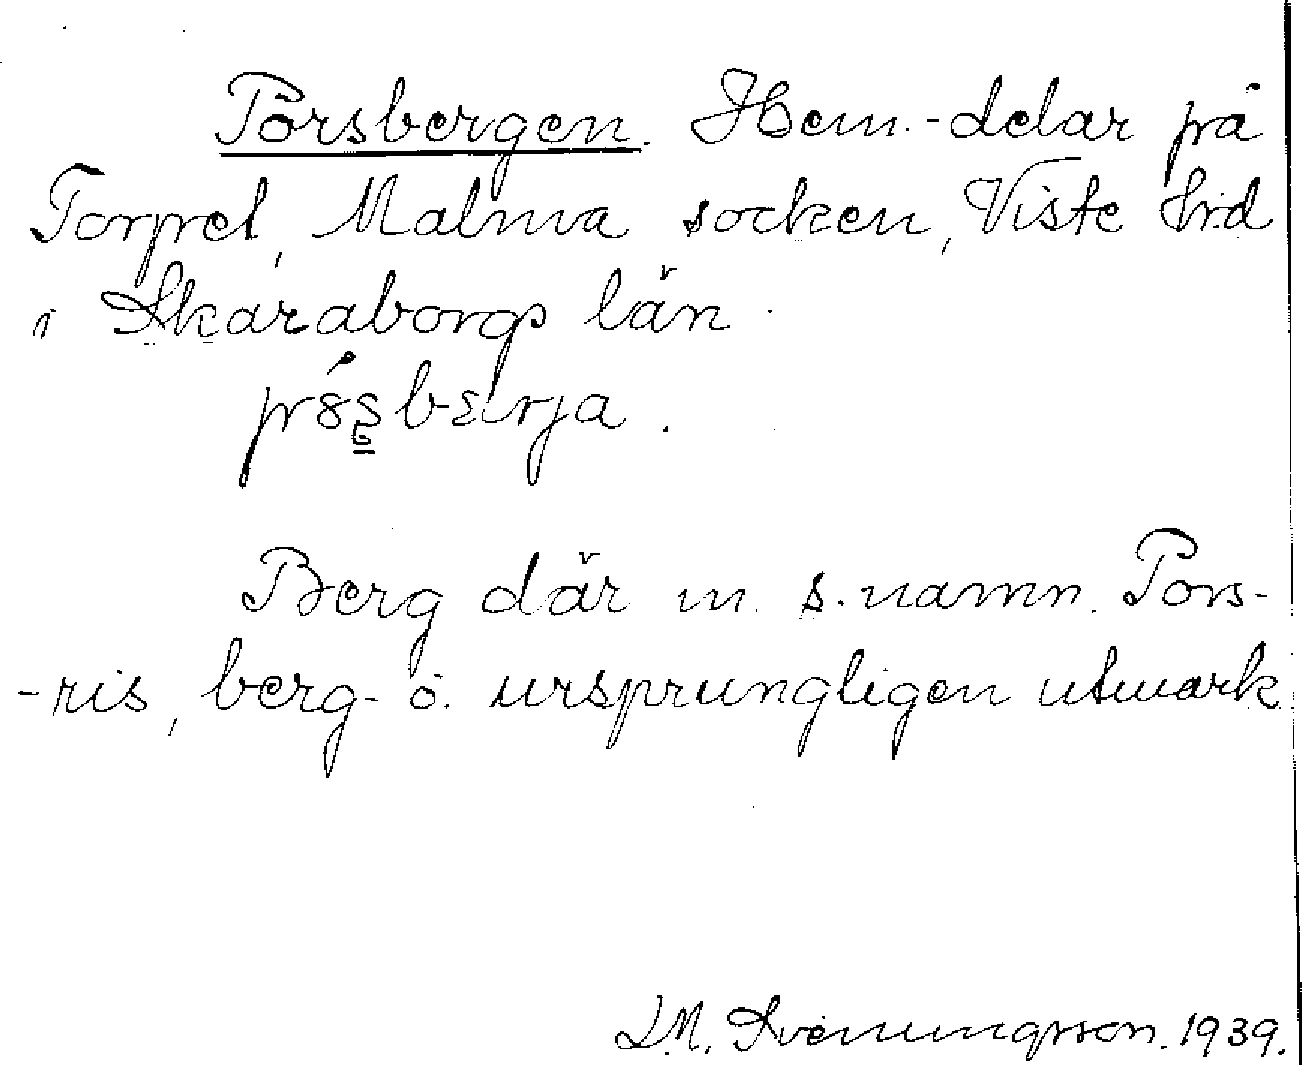 Porsbergen. Hem.-delar på
Torpet, Malma socken, Viste hrd
i Skaraborgs län.
Berg där m. s. namn. Pors-
-ris, berg- o. ursprungligen utmark.
L.M. Svenungsson. 1939.